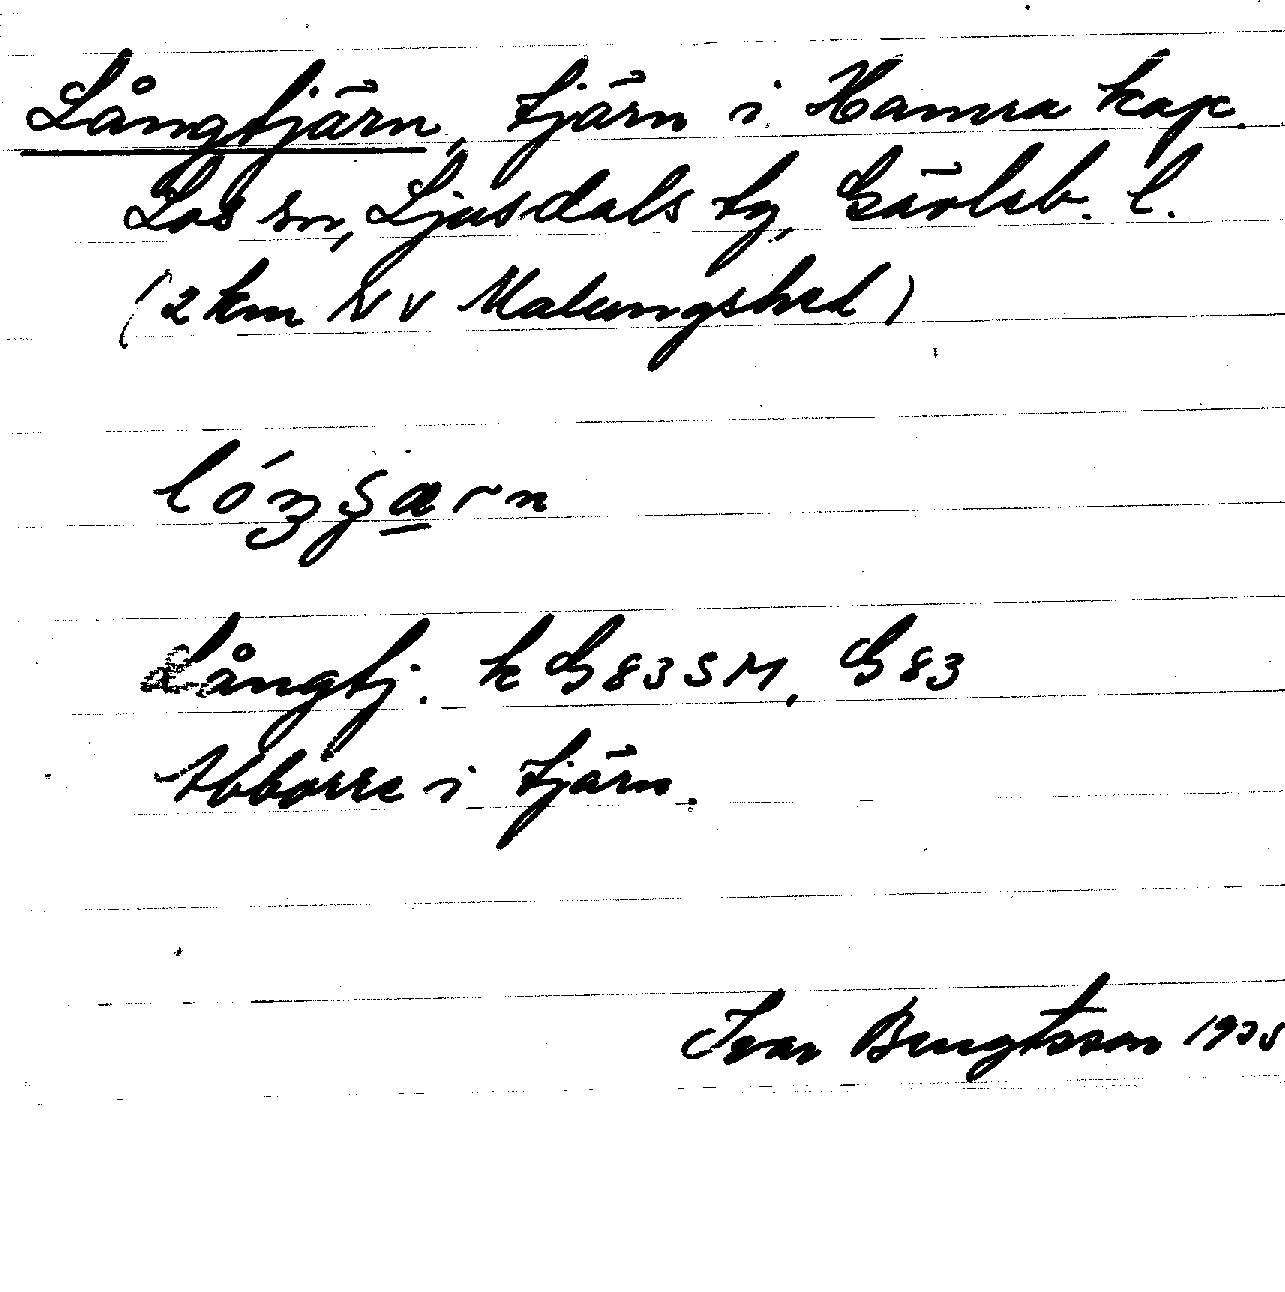 Långtjärn, tjärn i Hamra kap.
Los sn, Ljusdals tg, Gävleb. l.
(2 km NV Malungshed)
lóŋʂærn
Långtj. k G 83 SM, G 83
Abborre i tjärn.
Ivar Bengtsson